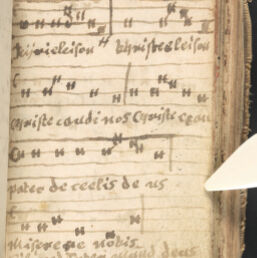 Kyrieleison Christeeleison
Christe audi nos Christe exau
pater de celis de us
Miserere nobis